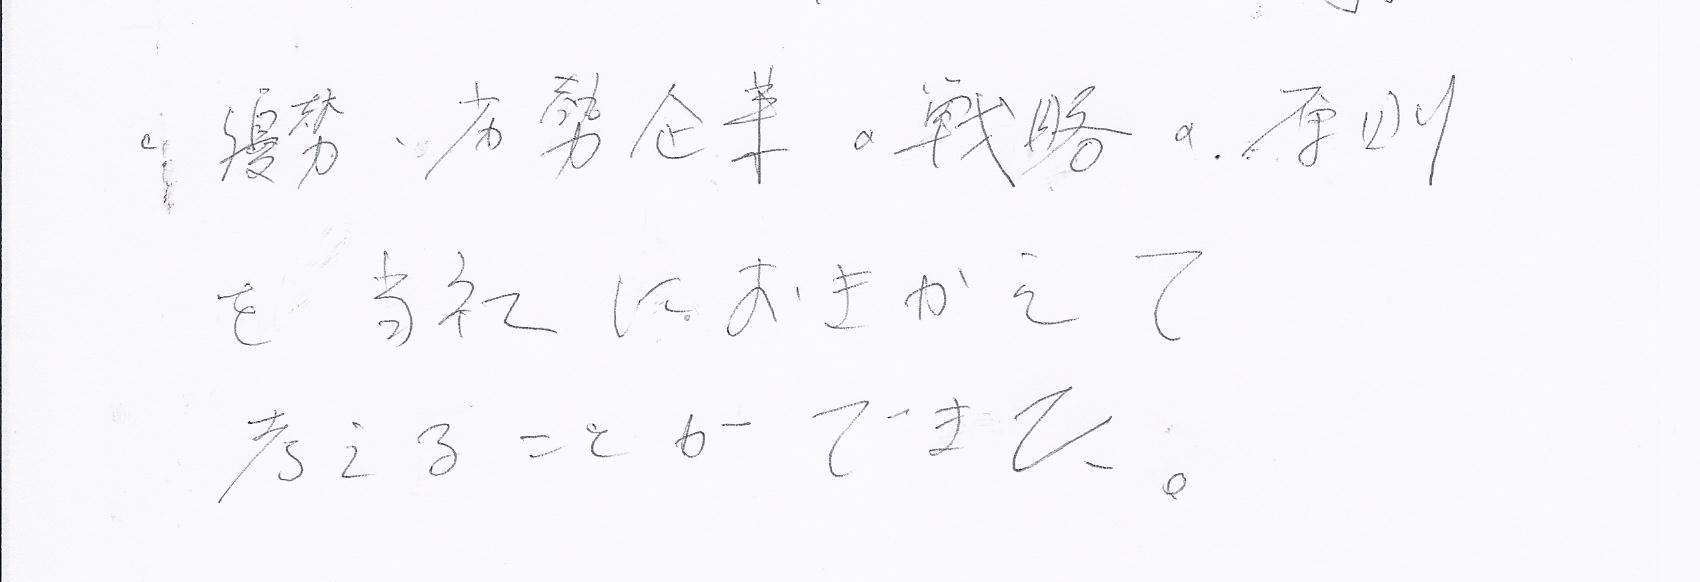 ・優勢、劣勢企業の戦略の原則
を当社におきかえて
考えることができた。